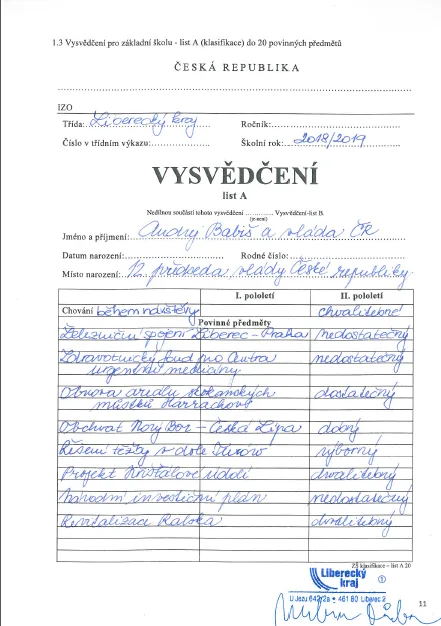 1.3 Vysvědčení pro základní školu - list A (klasifikace) do 20 povinných předmětů
ČESKÁ REPUBLIKA
IZO
Třída: Liberecký kraj Ročník:
Číslo v třídním výkazu: Školní rok: 2018/2019
VYSVĚDČENÍ
list A
Nedílnou součástí tohoto vysvědčení ............ Vysvědčení-list B.
(je-není)
Jméno a příjmení: Andrej Babiš a vláda ČR
Datum narození: Rodné číslo:
Místo narození: 12. předseda vlády České republiky
I. pololetí II. pololetí
Chování během návštěvy chvalitebné
Povinné předměty
Železniční spojení Liberec - Praha nedostatečný
Zdravotnický fond pro Centra nedostatečný
urgentní medicíny
Obnova areálu skokanských dostatečný
můstků Harrachov
Obchvat Nový Bor - Česká Lípa dobrý
Řešení těžby v dole Turów výborný
Projekt Křišťálové údolí chvalitebný
Národní investiční plán nedostatečný
Revitalizace Ralska chvalitebný
ZŠ klasifikace – list A 20
Liberecký
kraj
U Jezu 642/2a • 461 80 Liberec 2
11